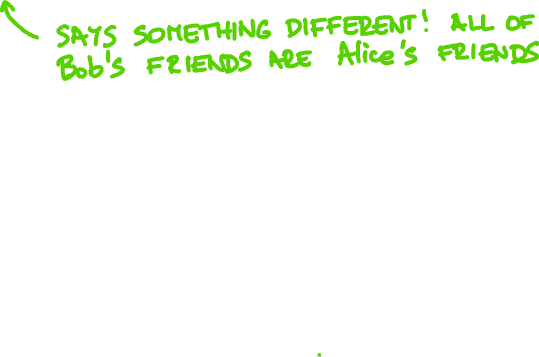 SAYS SOMETHING DIFFERENT! ALL OF
Bob's FRIENDS ARE Alice's FRIENDS